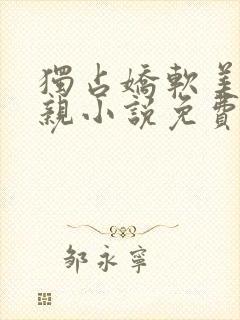 獨占嬌軟美
親小說免費
邹永寧